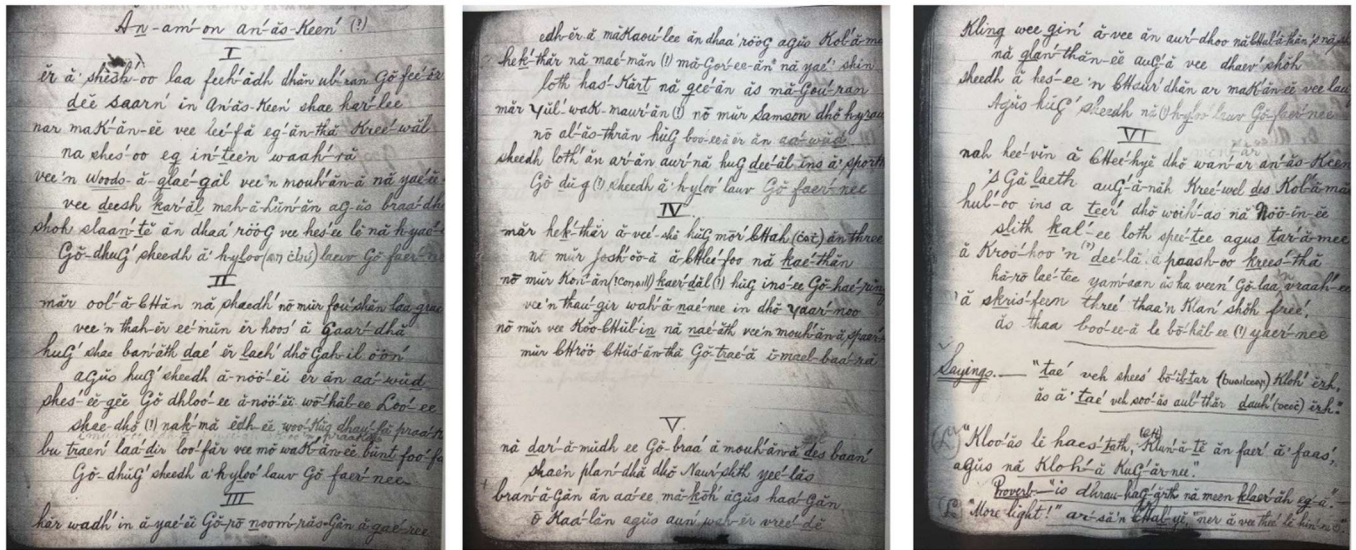 Ăn-am´-on an´-ăs-Keen´ (?)
I
ĕr ă´ sheăh´-oo laa feeh´-ădh dhăn ub´-ran Gŏ fee´-ĕr
dĕĕ saarn´ in an´-ăs-Keen´ shae har-lee
nar maK-ăn-ĕĕ vee lee´-fă eg´-ăn-thă Kree´-wăl
na shes´-oo eg in´-teen waah´-ră
vee´n woods-ă glae´-găl vee´n mouh´-ăn-ă nă yae´-ĕ
vee deesh kar´-ăl mah-ă-hŭn´-ăn aG-ŭs braa´-dh
shoh slaan´-tĕ ăn dhaa´ rŏŏG vee hes´-ĕĕ lĕ nă h-yae´
Gŏ-dhuG´ sheedh ă´ h-yloo (an ċlŭ) lauv Gŏ faer´-nee
II
măr ool´-ă-CHăn nă shaedh´ nŏ mŭr fou´-shăn laa-grae
vee´n thah-ĕr ee´-mŭn ĕr hoos´ ă Gaar´-dhă
huG´ shae ban´-ăth dae´ ĕr laeh´ dhŏ Gah-il ŏŏn´
aGŭs huG´ sheedh ă-nŏŏ´-ĕi ĕr ăn aa´-wŭd
shes´-ĕĕ-gĕĕ Gŏ dhloo´-ĕĕ ă-nŏŏ´-ĕi wŏ´-hăb-ĕĕ Loo´-ĕĕ
shae-dhŏ (?) nak-mă ĕdh-ĕĕ woo-Kŭs dhau´-hă praa´-K
bu traen´ laa´-dir loo´-făr vee mŏ waK´-ăn-ĕĕ bŭnt foo´-fa
Gŏ-dhŭG´ sheedh ă h-yloo´ lauv Gŏ faer´-nee
III
hăr wadh´ in ă yae´-ĕi Gŏ-rŏ noom´-răs-Găn ă gae´-ree
edh-ĕr ă măKaou´-lee ăn dhaa´ rŏŏG agŭs Kol-ă-ma
hek´-thăr nă mae´-măn (?) mă-Gor´-ee-ăn´ nă yae´ shin
loth has´-Kărt nă gee´-ăn ăs mă-Gou´-ran
măr Yŭl´ wak-maur´-ăn (?) nŏ mŭr Samson dhŏ hyrau
nŏ al´-ăs-thrăn hŭG boo-ee-ă ĕr ăn aa´-wŭd
sheedh loth´-ăn ar-ăn aur´-nă huG dĕĕ-ăl ins ă´ sporth
Gŏ dŭg (?) sheedh ă h-yloo´ lauv Gŏ faer-nee
IV
măr hek-thăr ă-vee´-shĕ hŭG mŏr´ CHah (ċaṫ) ăn three
nĕ mŭr Josh´-ŏŏ-ă ă-CHlee´-foo nă kae´-thăn
nŏ mŭr Kon-ăn (?Conall) kaer-dăl (?) hŭG ins-ee Gŏ-hae-rŭn
vee´n thau´-gir wah´-ă nae´-nee in dhŏ Yaar´-noo
nŏ mŭr vee Koo-CHŭl´-in nă nae´-ăth vee´n mouh´-ăn-ă spaer
mŭr CHrŏŏ CHŭs´-ăn-thă Gŏ-trae´-ă ĕ-mael-baa´-ră
V
nă dar´-ă-mŭdh ee Gŏ-braa´ ă mouh´-ăn-ă des baan´
skaen plan´-dhă dhŏ Naur´-shth yee´-lăs
bran´-ă-Găn ăn aa´-ee, mă-kŏh´ agŭs haa´-Găn
ŏ Kaa´-lăn agŭs aun´ wah-ĕr vree´-dĕ
Kling wee gin´ ă-vee ăn aur´-dhoo
nă glan´-thăn-ĕĕ auG´-ă vee dhaev´ shŏh
sheedh ă hes´-ee ´n CHaur´ dhăn ar maK´-ăn-ĕĕ vee lau
Agŭs hŭG´ sheedh nă (?) hyloo lauv Gŏ-faer-nee
VI
nah hee´-vĭn ă CHee´-hyĕ dhŏ wan´-ar an´-ăs-Keen
´s Gă laeth auG´-ă-năh Kree´-wel des Kol-ă-mă
hul´-oo ins a teer´ dhŏ woih´-as nă Nŏŏ-ĭn-ĕĕ
slith kal´-ee loth spee´-tee agus tar´-ă-mee
ă Kroo´-hoo ´n (?) dee´-lă ă paash´-oo krees-thă
hă-rŏ lae´-tee yam´-san ăs ha veen´ Gŏ-laa´ vraah´-ee
´ă skris´-feen three´ thaa´n Klan´ shŏh free´
ăs thaa boo´-ee-ă le bŏ-hăb´-ee (?) yaer´-neĕ
Sayings.— "tae´ veh shees´ bŏ´-ib-tar (buailtear) Kloh´ ĕrh,
ăs ă´ tae´ veh soo´-ăs aub´-thăr dauh´ (deoċ) ĕrh."
"Kloo´-ăs lĕ haes´-tath, Klun´-ă-tĕ ăn faer´ ă´ faas´,
agŭs nă Kloh´-ă KuG´-ăr-nee".
Proverb—"is dhrau´-hăG´-ărth nă meen klaer´-ăh eg´-ă"—
"More light!" ar´-să´n CHal´-yĕ, "ner ă vee thee´ lĕ